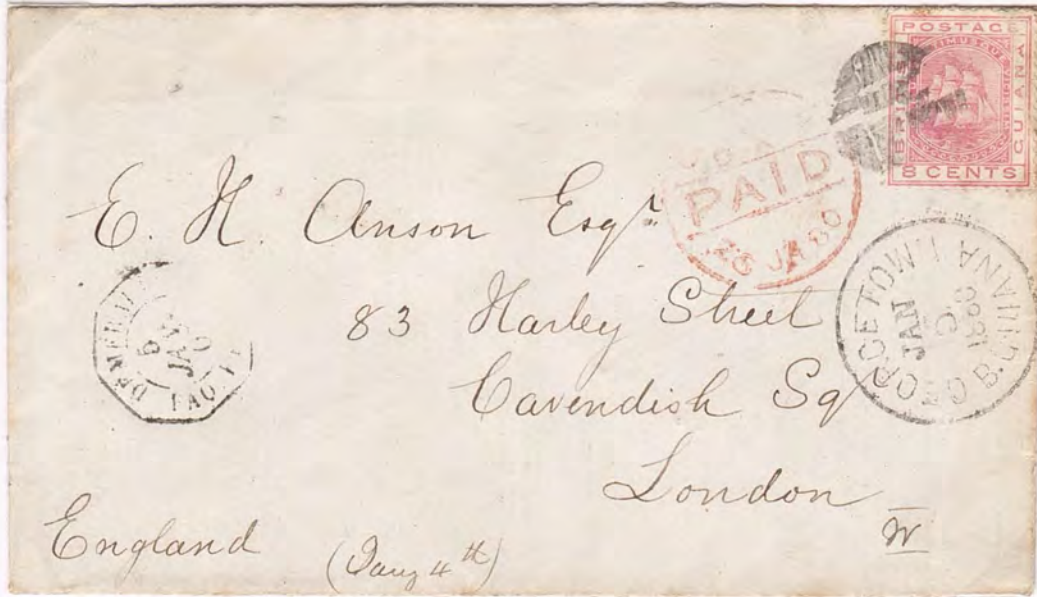 POSTAGE
GUIANA
8 CENTS
PAID
JA 80
E. H. Anson Esqr
83 Harley Street
Cavendish Sq
London
W
England
(Jany 4th)
GEORGETOWN B. GUIANA
JAN
1880
DEMER
6
JA
PAQ